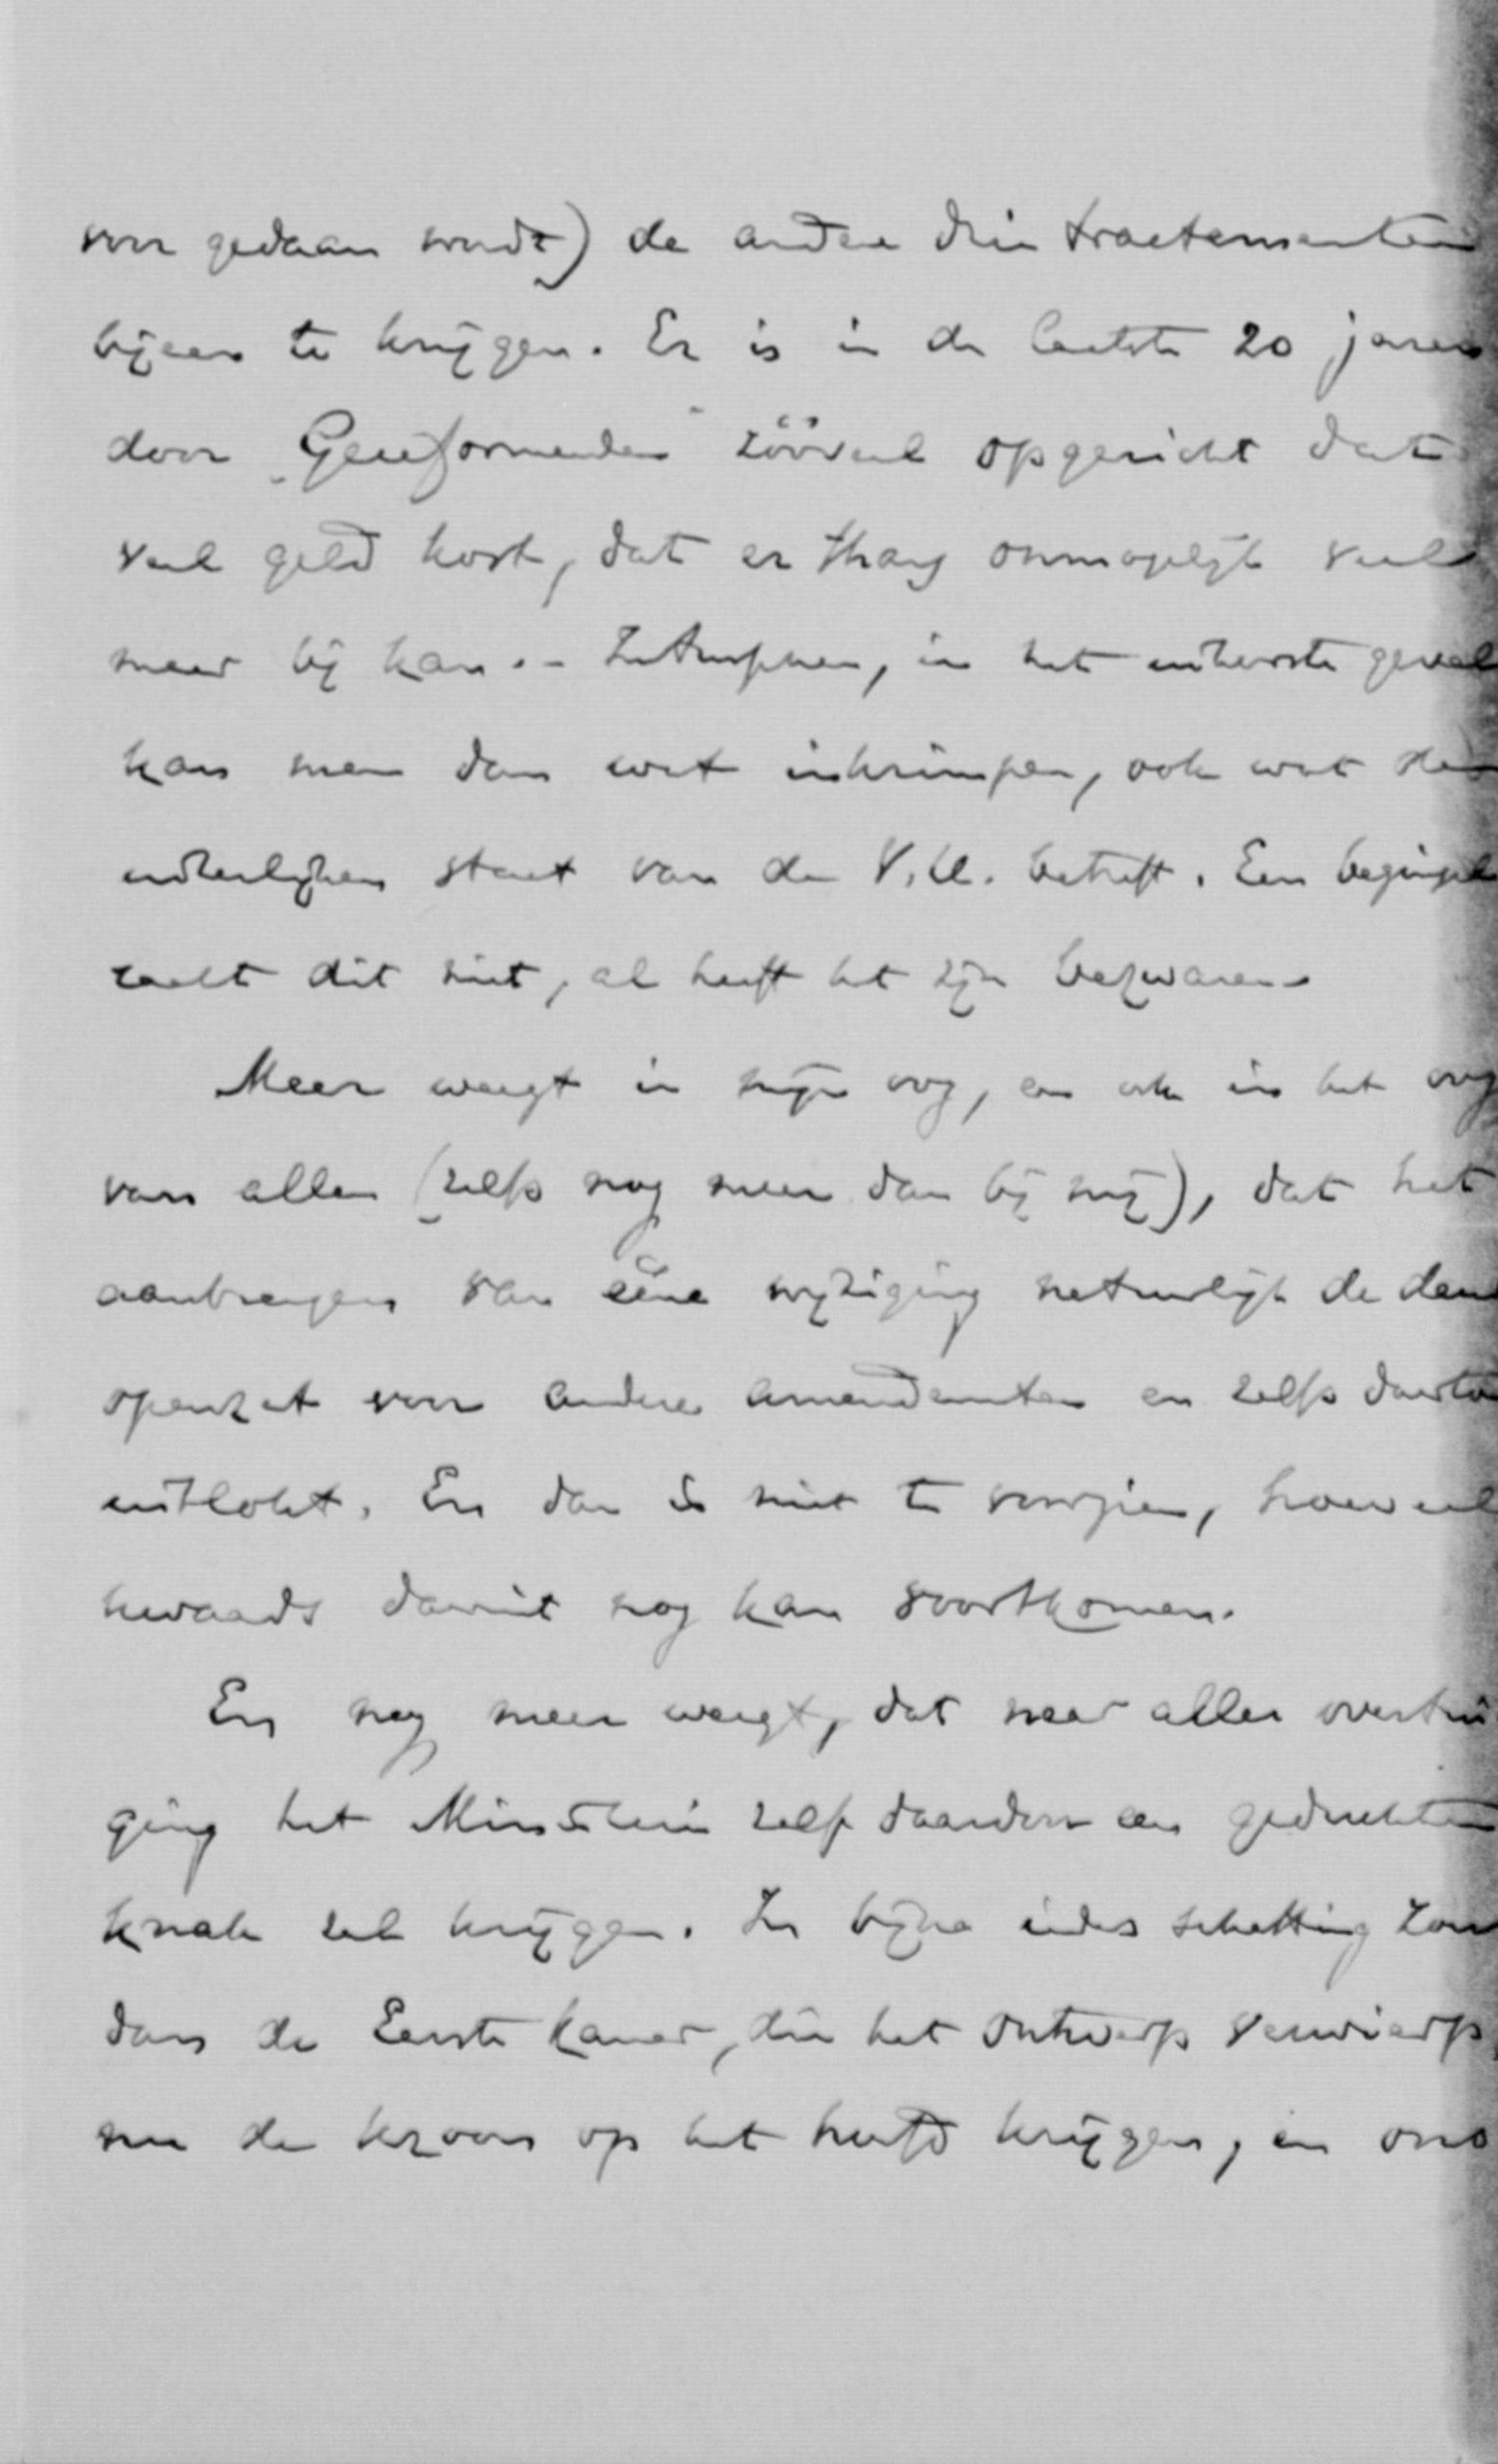 voor gedaan wordt) de andere drie tractementen
bijeen te krijgen. Er is in de laatste 20 jaren
door „Gereformeerden" zóóveel opgericht dat
veel geld kost, dat er thans onmogelijk veel
meer bij kan. – Intusschen, in het uiterste geval
kan men dan wat inkrimpen, ook wat den
uiterlijken staat van de V.U. betreft. Een beginsel
raakt dit niet, al heeft het zijn bezwaren.
Meer weegt in mijn oog, en ook in het oog
van allen (zelfs nog meer dan bij mij), dat het
aanbrengen van ééne wijziging natuurlijk de deur
openzet voor andere amendementen en zelfs daartoe
uitlokt. En dan is niet te voorzien, hoeveel
kwaads daaruit nog kan voortkomen.
En nog meer weegt, dat naar aller overtui
ging het Ministerie zelf daardoor een geduchten
knak zal krijgen. In bijna ieders schatting zou
dan de Eerste Kamer, die het ontwerp verwierp,
nu de kroon op het hoofd krijgen, en ons